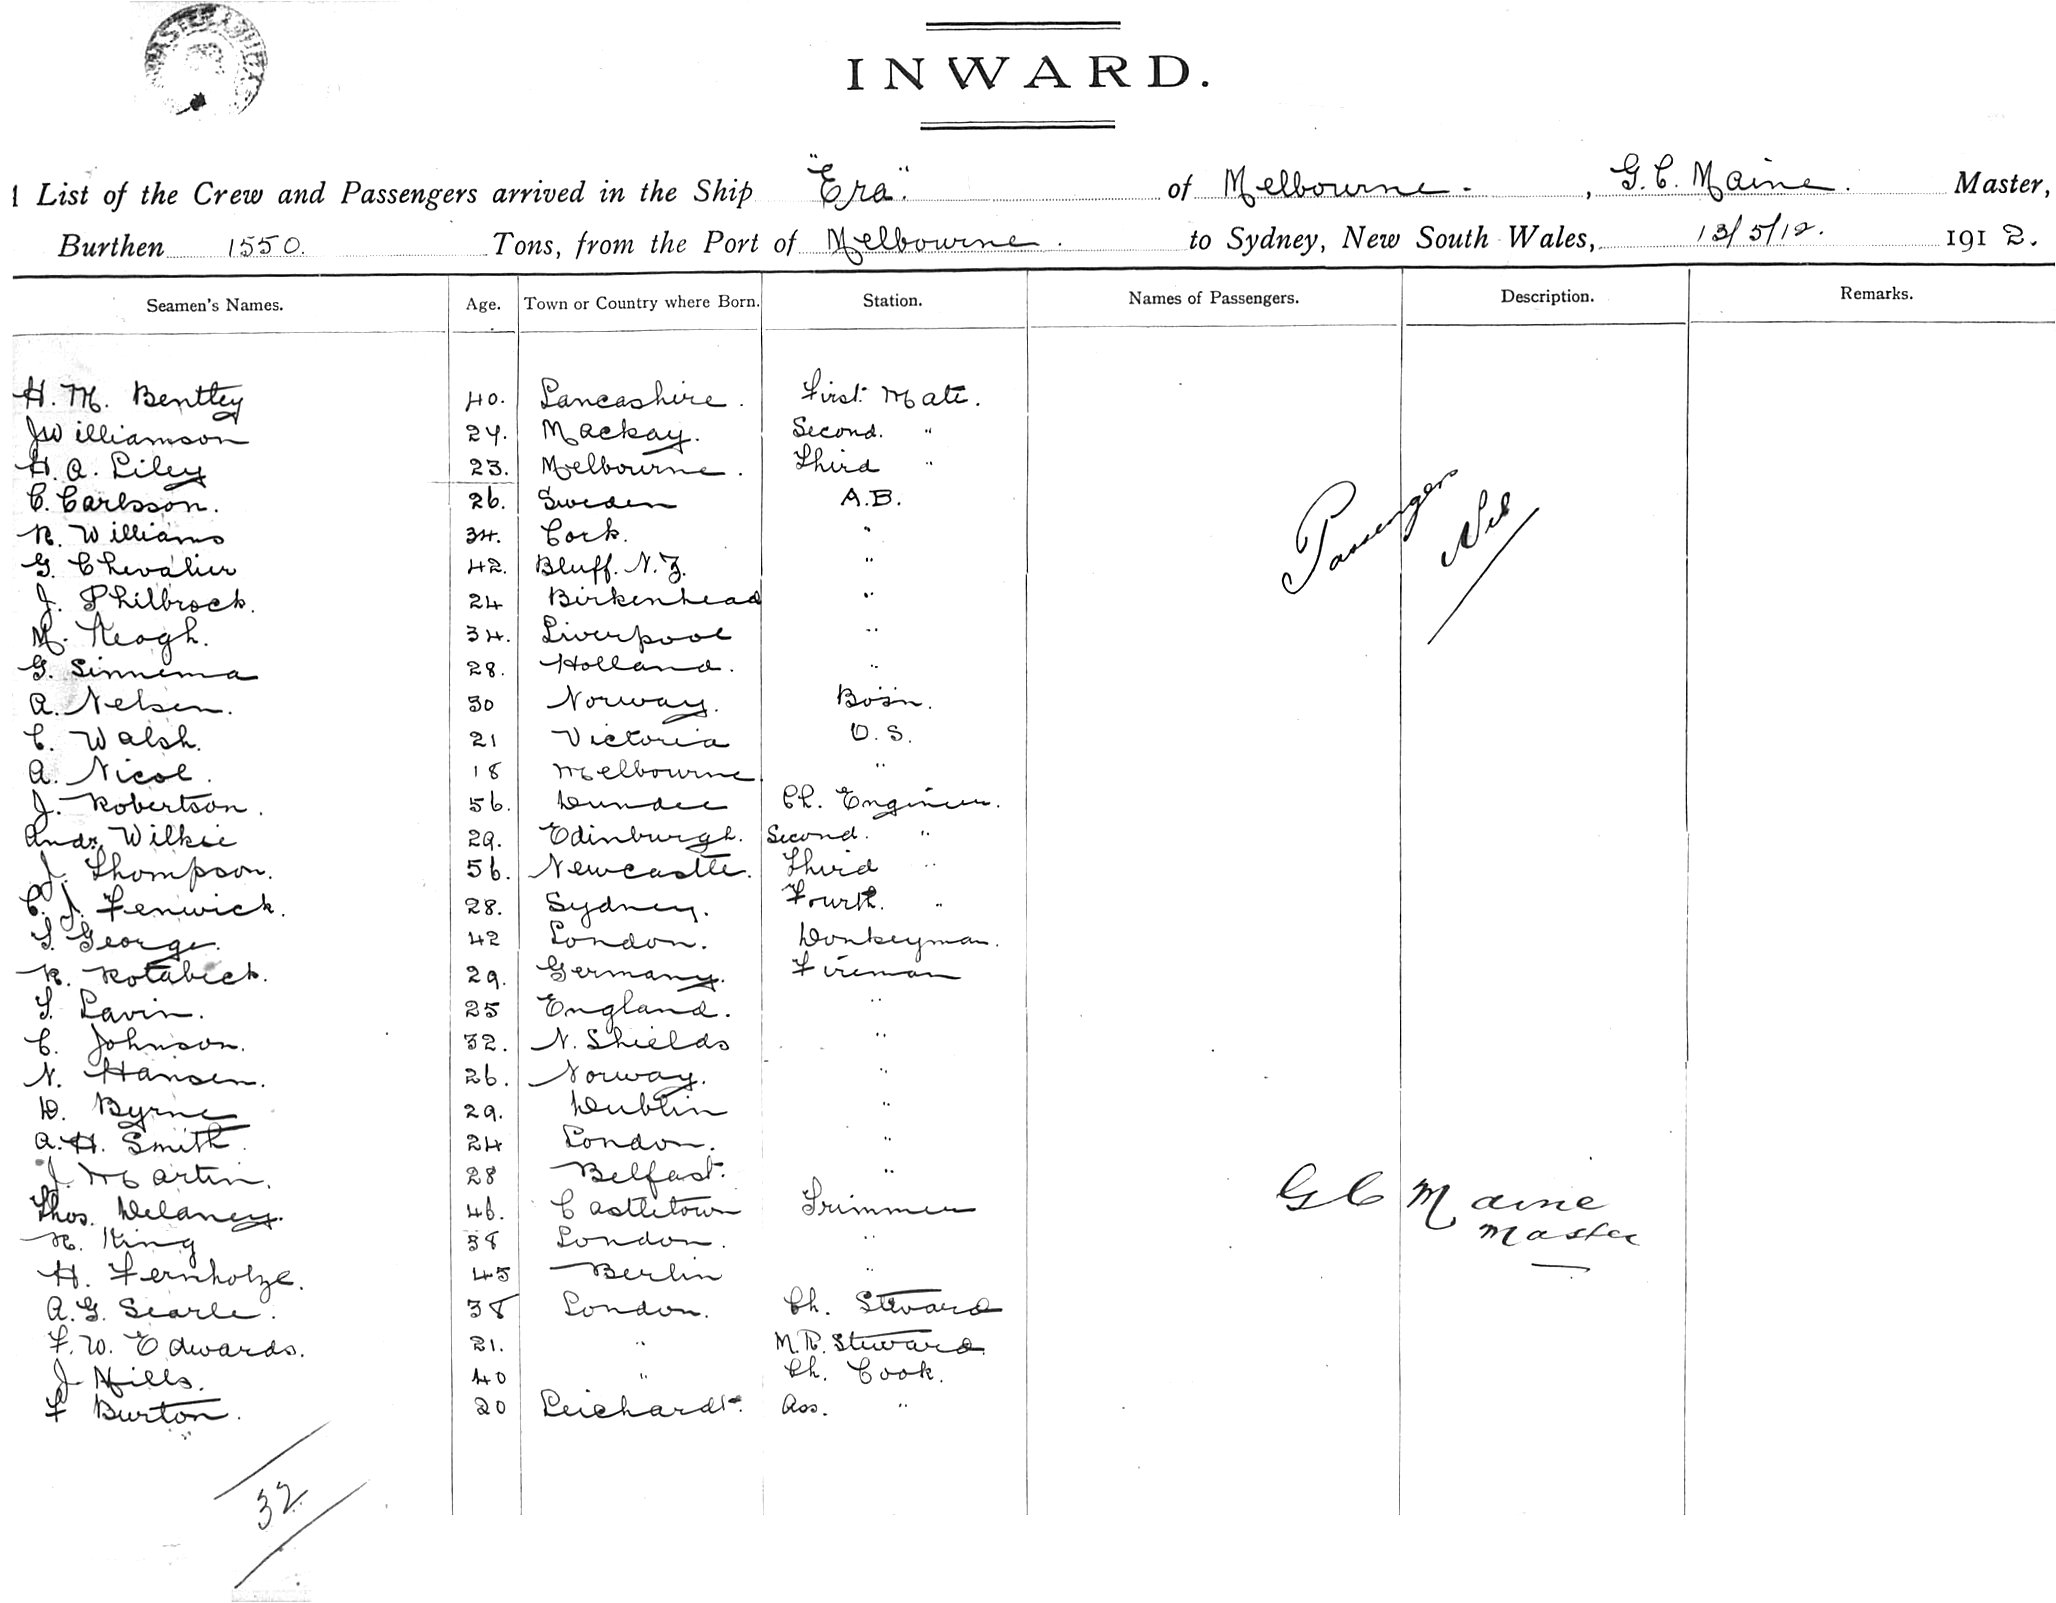 INWARD.
List of the Crew and Passengers arrived in the Ship "Era" of Melbourne. , G. C. Maine. Master,
Burthen 1550. Tons, from the Port of Melbourne. to Sydney, New South Wales, 13/5/12. 1912.
Seamen's Names. Age. Town or Country where Born. Station. Names of Passengers. Description. Remarks.
H. M. Bentley 40. Lancashire. First Mate.
J Williamson 24. Mackay. Second. "
H. A. Liley 23. Melbourne. Third "
C. Carlsson. 26. Sweden A.B.
R. Williams 34. Cork. "
G. Chevalier 42. Bluff. N.Z. "
J. Philbrock. 24 Birkenhead "
M. Keogh. 34. Liverpool "
G. Sinnema 28. Holland. "
A. Nelsen. 30 Norway. Bosn.
C. Walsh. 21 Victoria O.S.
A. Nicol. 18 Melbourne "
J. Robertson. 56. Dundee Ch. Engineer.
Andr. Wilkie 29. Edinburgh. Second. "
J. Thompson. 56. Newcastle. Third "
C. J. Fenwick. 28. Sydney. Fourth. "
T. George. 42 London. Donkeyman.
R. Rotabeck. 29. Germany. Fireman
T. Lavin. 25 England. "
C. Johnson. 32. N. Shields "
N. Hansen. 26. Norway. "
D. Byrne 29. Dublin "
A. H. Smith. 24 London. "
J. Martin. 28 Belfast. "
Thos. Delaney. 46. Castletown Trimmer
King 38 London. "
H. Fernholze. 45 Berlin "
A. G. Searle. 38 London. Ch. Steward
F. W. Edwards. 21. " M.R. Steward.
J Hills. 40 " Ch. Cook.
F Burton. 20 Leichardt. Ass. "
Passengers Nil
G C Maine
Master
32